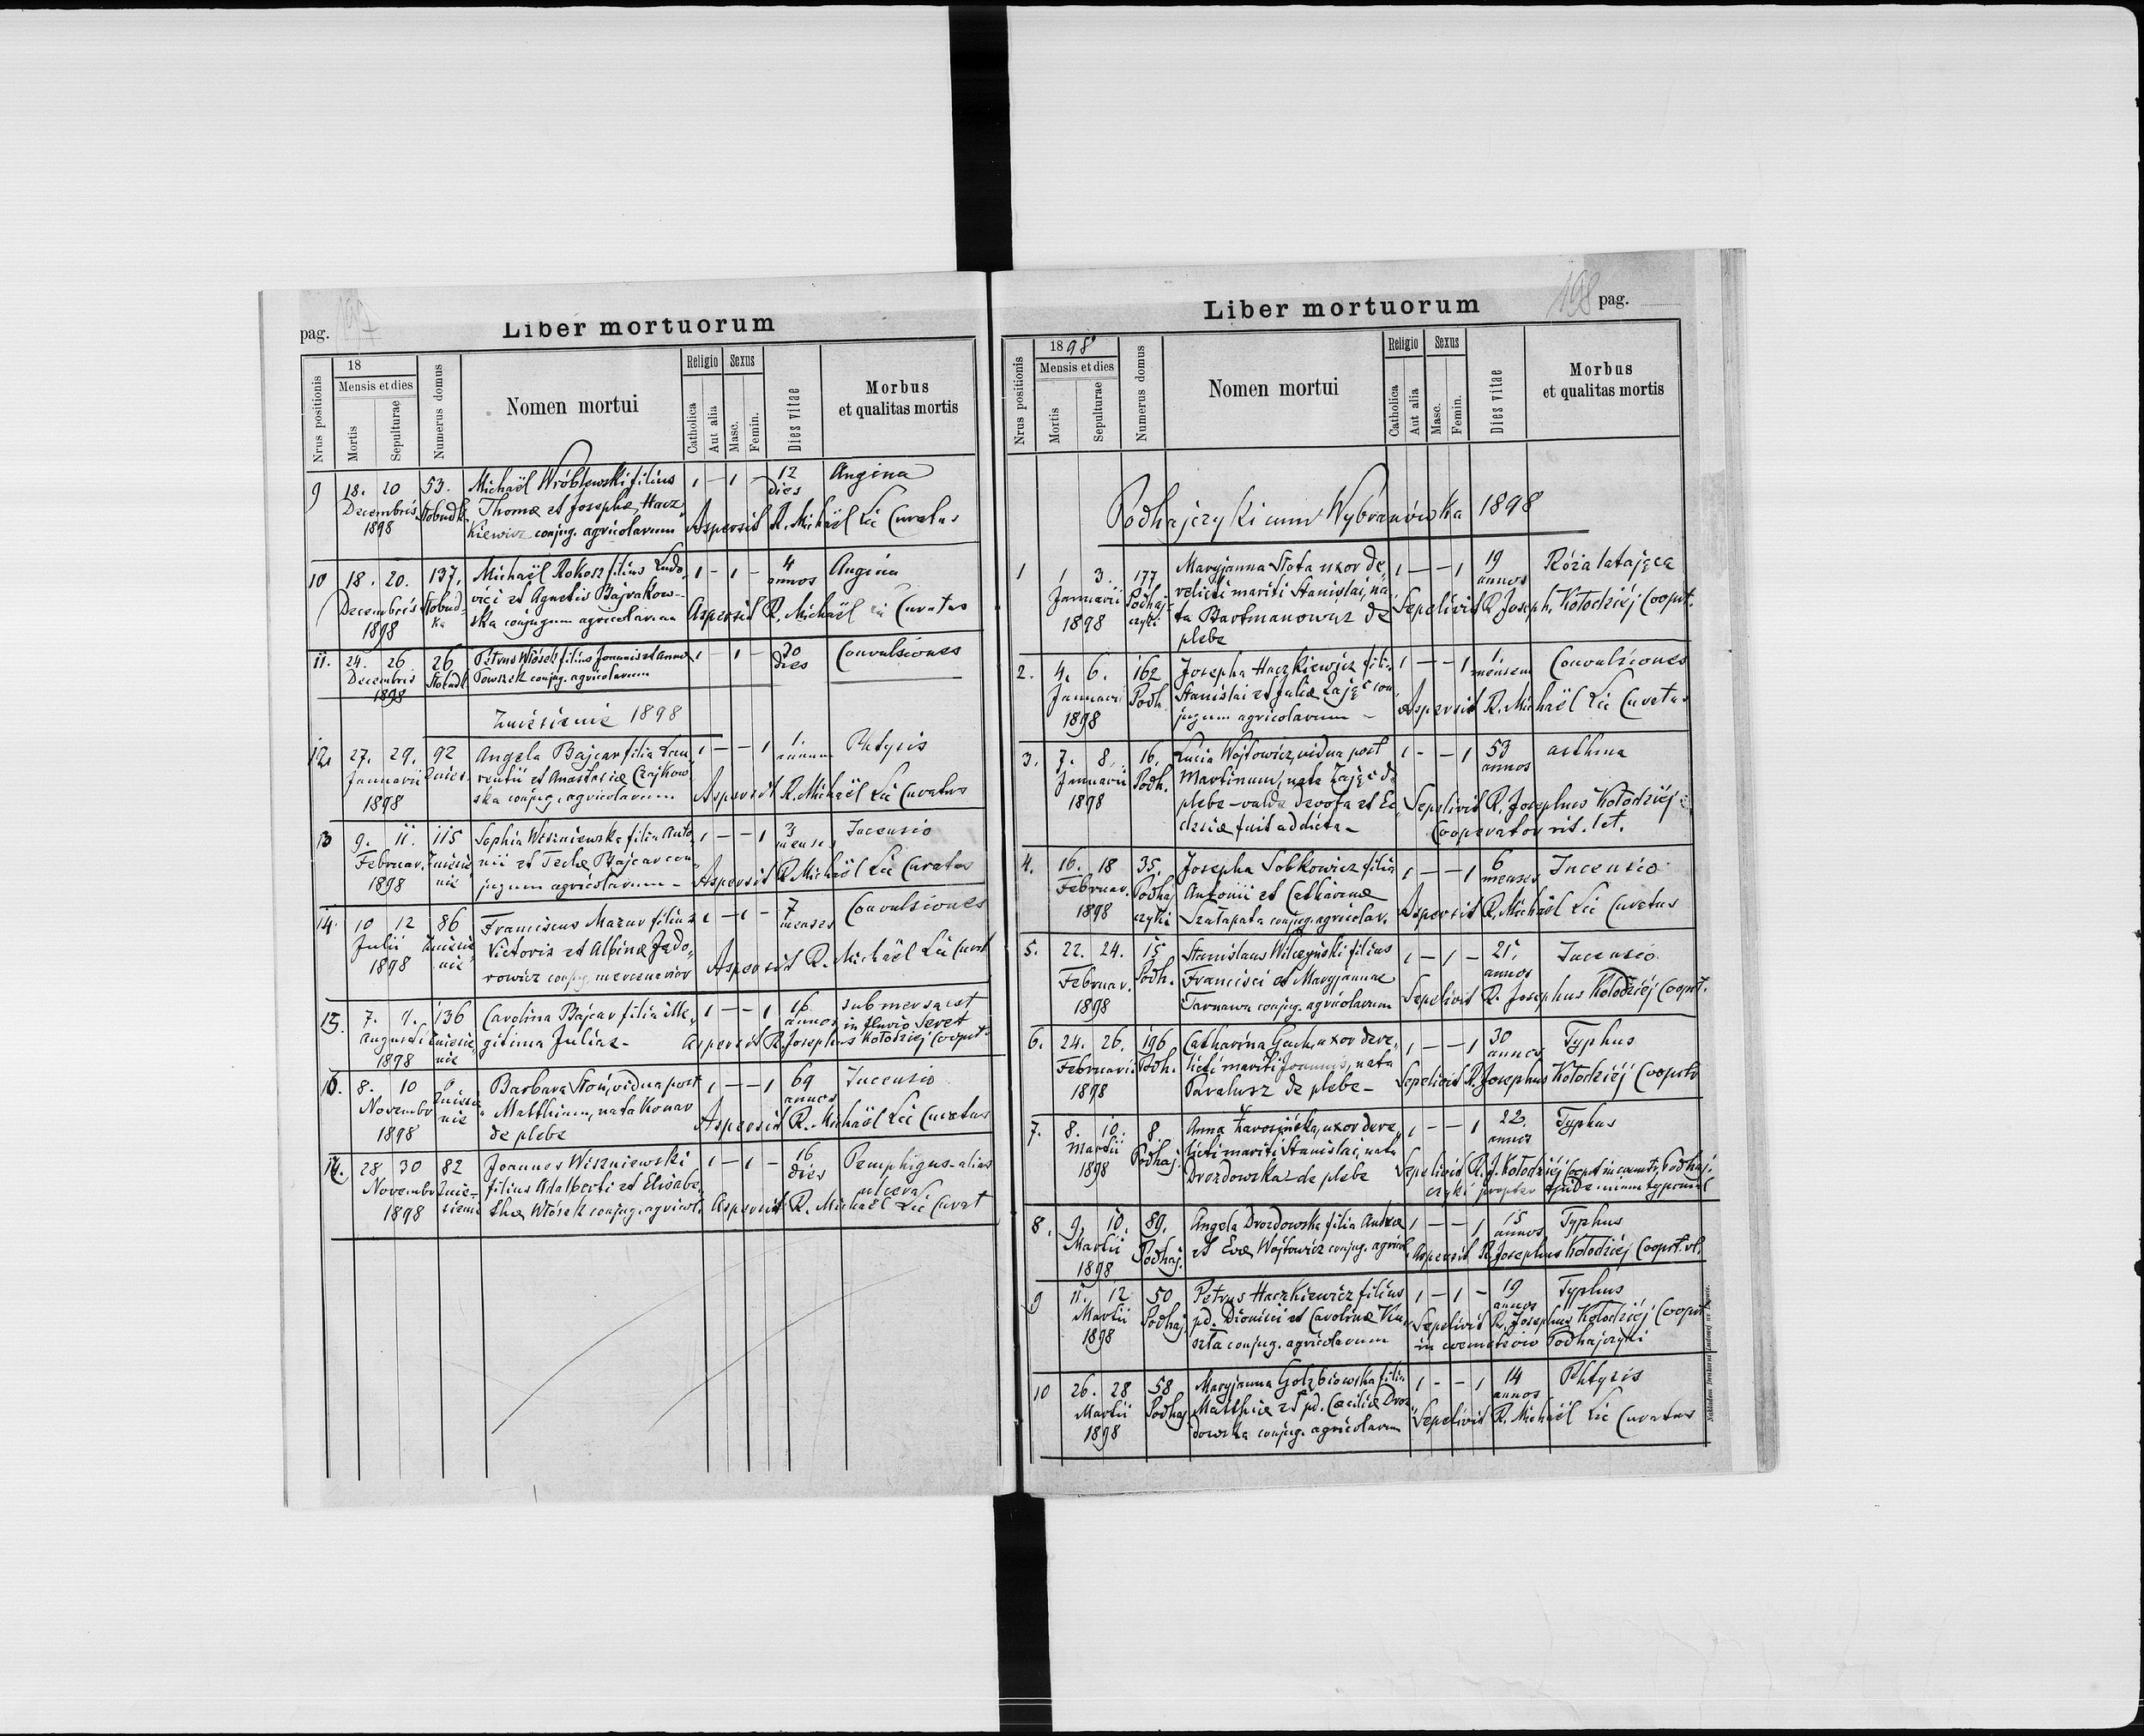 pag. 197
Liber mortuorum
Nrus positionis
18
Mensis et dies
Mortis
Sepulturae
Numerus domus
Nomen mortui
Religio
Catholica
Aut alia
Sexus
Masc.
Femin.
Dies vitae
Morbus
et qualitas mortis
9 18. 20 53. Michaël Wróblewski filius 1 – 1 – 12 Angina
Decembris Słobudk. Thomæ et Josephæ Hacz„ dies
1898 Kiewicz conjug. agricolarum Aspersit R. Michaël Lic Curatus
10 18. 20. 137. Michaël Rokosz filius Ludo„ 1 – 1 – 4 Angina
Decembris Słobud„ vici et Agnetis Bajrakow– annos
1898 ka ska conjugum agricolarum Aspersit R. Michaël Lic Curatus
11. 24. 26 26 Petrus Włósek filius Joannis et Annæ 1 – 1 – 20 Convulsiones
Decembris Słobudk. conjug. agricolarum dies
1898
Zniesienie 1898
12. 27. 29. 92 Angela Bajcar filia Lau„ 1 – – 1 1 Phtysis
Januarii Znies. rentii et Anastasiæ Czajkow„ annum
1898 ska conjug. agricolarum Aspersit R. Michaël Lic Curatus
13 9. 11. 115 Sophia Wiszniewska filia Anto„ 1 – – 1 3 Incensio
Februar. Zniesie„ nii et Teclæ Bajcar con„ menses
1898 nie jugum agricolarum – Aspersit R. Michaël Lic Curatus
14. 10 12 86 Franciscus Mazur filius 1 – 1 – 7 Convulsiones
Julii Zniesie„ Victoris et Albinæ Fedo„ menses
1898 nie rowicz conjug. mercenarior Aspersit R. Michaël Lic Curat
15. 7. 136 Carolina Bajcar filia ille„ 1 – – 1 16 submersa est
Augusti Zniesie„ gitima Juliæ – annos in fluvio Seret
1898 nie Aspersit R. Josephus Kołodziéj Cooprt
16. 8. 10 Barbara Stoń, vidua post 1 – – 1 69 Incensio
Novembr Zniesie„ Matthiam, nata Konar annos
1898 nie de plebe Aspersit R. Michaël Lic Curatus
28 30 82 Joannes Wiszniewski 1 – 1 – 16 Pemphigus – alias
Novembr Znie– filius Adalberti et Elisabe„ dies ulcera
1898 sienie thæ Włósek conjug. agricol. Aspersit R. Michaël Lic Curat
198 pag.
Liber mortuorum
Nrus positionis
1898
Mensis et dies
Mortis
Sepulturae
Numerus domus
Nomen mortui
Religio
Catholica
Aut alia
Sexus
Masc.
Femin.
Dies vitae
Morbus
et qualitas mortis
Podhajczyki cum Wybranówka 1898
1 1 3. 177 Maryjanna Słota uxor de„ 1 – – 1 19 Róża latająca
Januarii Podhaj„ relicti mariti Stanislai, na„ annos
1898 czyki ta Bartmanowicz de Sepelivit R. Joseph. Kołodziéj Cooprt.
plebe
2. 4. 6. 162 Josepha Haczkiewicz filia 1 – – 1 1. Convulsiones
Januarii Podh. Stanislai et Juliæ Zając con„ mensem
1898 jugum agricolarum – Aspersit R. Michaël Lic Curatus
3. 7. 8. 16. Lucia Wójtowicz, vidua post 1 – – 1 53 asthma
Januarii Podh. Martinum, nata Zając de annos
1898 plebe – valde devota et Ec„ Sepelivit R. Josephus Kołodziéj
clesiæ fuit addicta – Cooperator rit. lat.
4. 16. 18 35. Josepha Sobkowicz filia 1 – – 1 6 Incensio
Februar. Podhaj Antonii et Catharinæ menses
1898 czyki Szałapata conjug. agricolar. Aspersit R. Michaël Lic Curatus
5. 22. 24. 15 Stanislaus Wilczyński filius 1 – 1 – 21. Incensio
Februar. Podh. Francisci et Maryjannæ annos
1898 Tarnawa conjug. agricolarum Sepelivit R. Josephus Kołodziéj Cooprt.
6. 24. 26. 196 Catharina Gach, uxor dere„ 1 – – 1 30 Typhus
Februarii Podh. licti mariti Joannis, nata annos
1898 Parałusz de plebe – Sepelivit R. Josephus Kołodziéj Cooprtr
7. 8. 10. 8 Anna Zarosińska, uxor dere„ 1 – – 1 22. Typhus
Martii Podhaj. licti mariti Stanislai, nata annos
1898 Drozdowska de plebe Sepelivit R. J. Kołodziéj Cooprt in cœmet. Podhaj„
czyki propter epidemiam
8. 9. 10. 89. Angela Drozdowska filia Andreæ 1 – – 1 15 Typhus
Martii Podhaj. et Evæ Wójtowicz conjug. agricol. annos
1898 Aspersit R. Josephus Kołodziéj Cooprt. rl.
9 11. 12 50 Petrus Haczkiewicz filius 1 – 1 – 19 Typhus
Martii Podhaj. pd. Dionisii et Carolinæ Kru„ annos
1898 szta conjug. agricolarum Sepelivit R. Josephus Kołodziéj Cooprt
in cœmeterio Podhajczyki
10 26. 28 58 Maryjanna Gołębiowska filia 1 – – 1 14 Phtysis
Martii Podhaj Matthiæ et pd. Cæciliæ Droz„ annos
1898 dowska conjug. agricolarum Sepelivit R. Michaël Lic Curatus